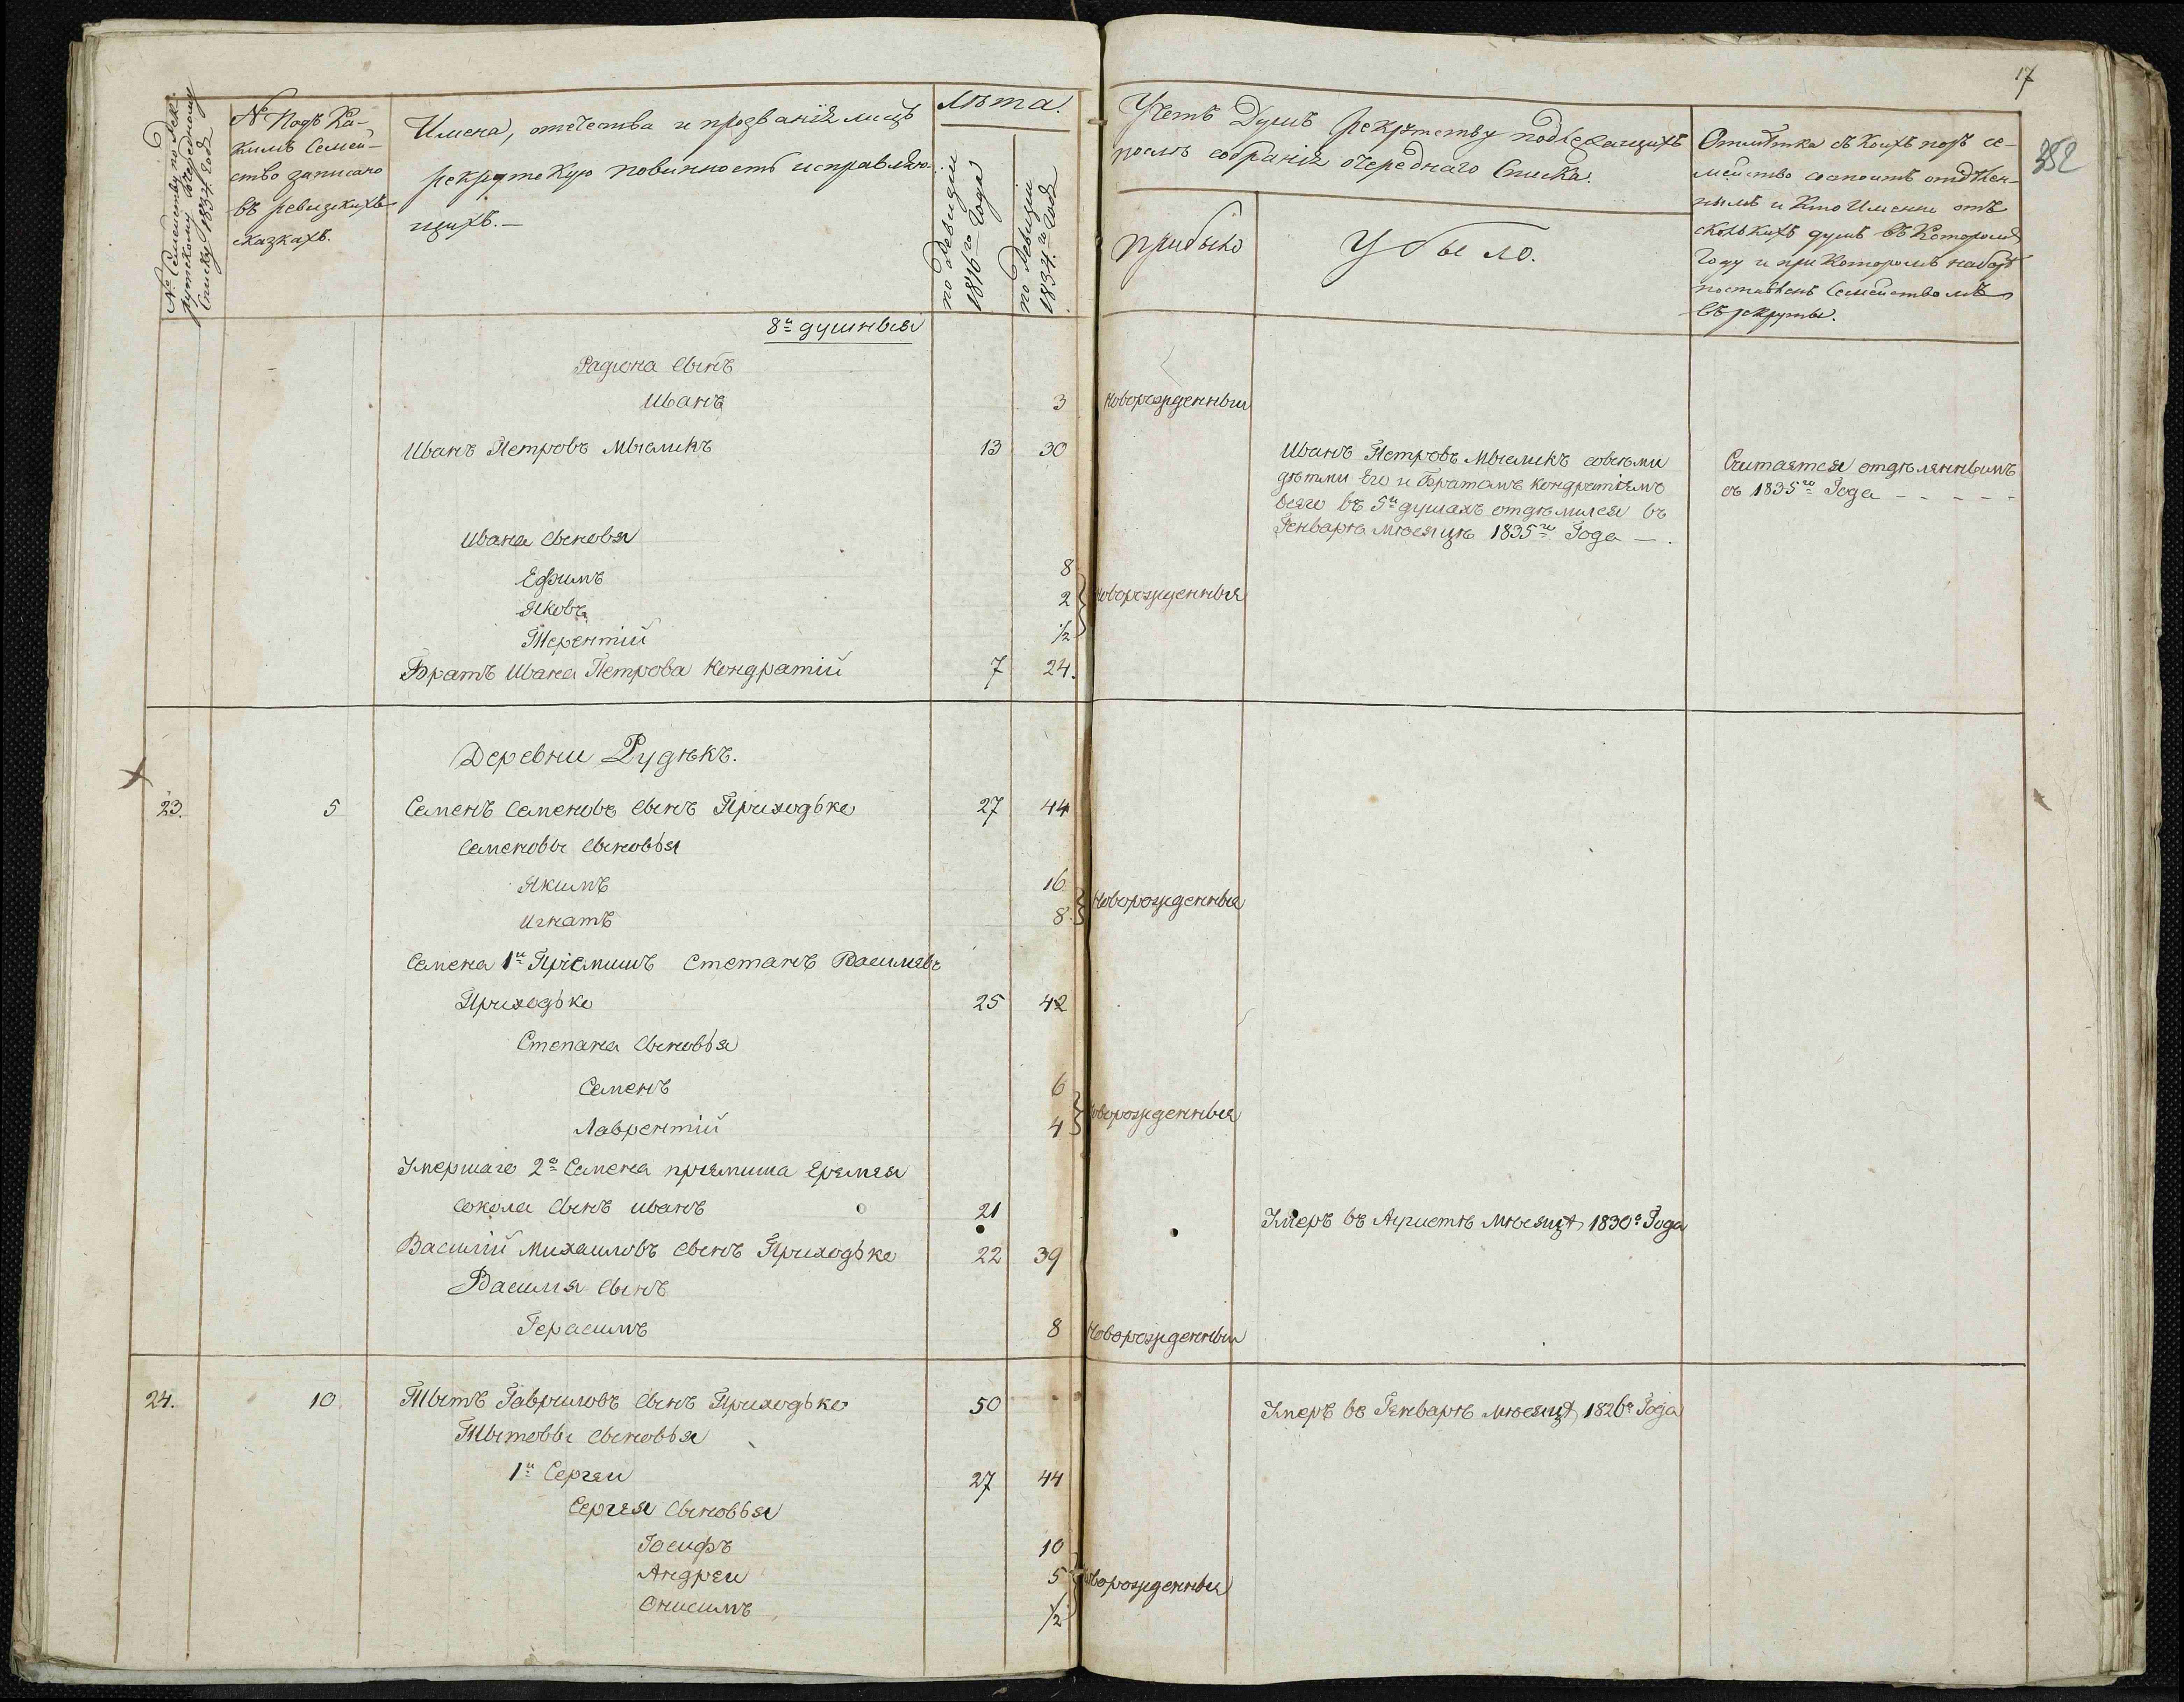 17
382
№ Семейству по рек-
рутскому очередному
Списку 1834. Года
№ Подъ Ка-
кимъ Семей-
ство записано
въ ревизскихъ
сказкахъ.
Имена, отечества и прозванiя лицъ
рекрутскую повинность исправляю-
щихъ.—
Лѣта.
по Ревизiи
1816го Года
по Ревизiи
1834.го Года
Учетъ Душъ рекрутству подлежащихъ
послѣ собранiя очереднаго Списка.
прибыло
Убыло.
Отмѣтка съ коихъ поръ се-
мейство состоитъ отдѣлен-
нымъ и Кто Именно отъ
сколькихъ душъ въ Которомъ
Году и при Которомъ наборѣ
поставленъ Семействомъ
въ рекруты.
8и душныя
Радiона Сынъ
Иванъ 3 Новорожденный
Иванъ Петровъ Мысликъ 13 30
Иванъ Петровъ Мысликъ совсѣми
дѣтми Его и Братомъ Кондратiемъ
всего въ 5и душахъ отдѣлился въ
Генварѣ мѣсяцѣ 1835го Года —.
Считается отделяннымъ
съ 1835го Года - - - - -
Ивана Сыновья
Ефимъ 8
Яковъ 2 Новорожденныя
Терентiй 1/2
Братъ Ивана Петрова Кондратiй 7 24.
Деревни Рудѣкъ.
23. 5 Семенъ Семеновъ Сынъ Приходько 27 44
Семеновы Сыновья
Якимъ 16
Игнатъ 8 Новорожденныя
Семена 1й Прiемишъ Степанъ Василявъ
Приходько 25 42
Степана Сыновья
Семенъ 6
Лаврентiй 4 Новорожденныя
Умершаго 2о Семена прiемиша Еремея
Сокола Сынъ иванъ 21 Умеръ въ Августѣ мѣсяцѣ 1830о Года
Василiй Михаиловъ Сынъ Приходько 22 39
Василия Сынъ
Герасимъ 8 Новорожденный
24. 10 Тытъ Гавриловъ Сынъ Приходько 50 Умеръ въ Генварѣ мѣсяцѣ 1826о Года
Тытовы Сыновья
1й Сергей 27 44
Сергея Сыновья
Iосифъ 10
Андреи 5 Новорожденныя
Онисимъ 1/2